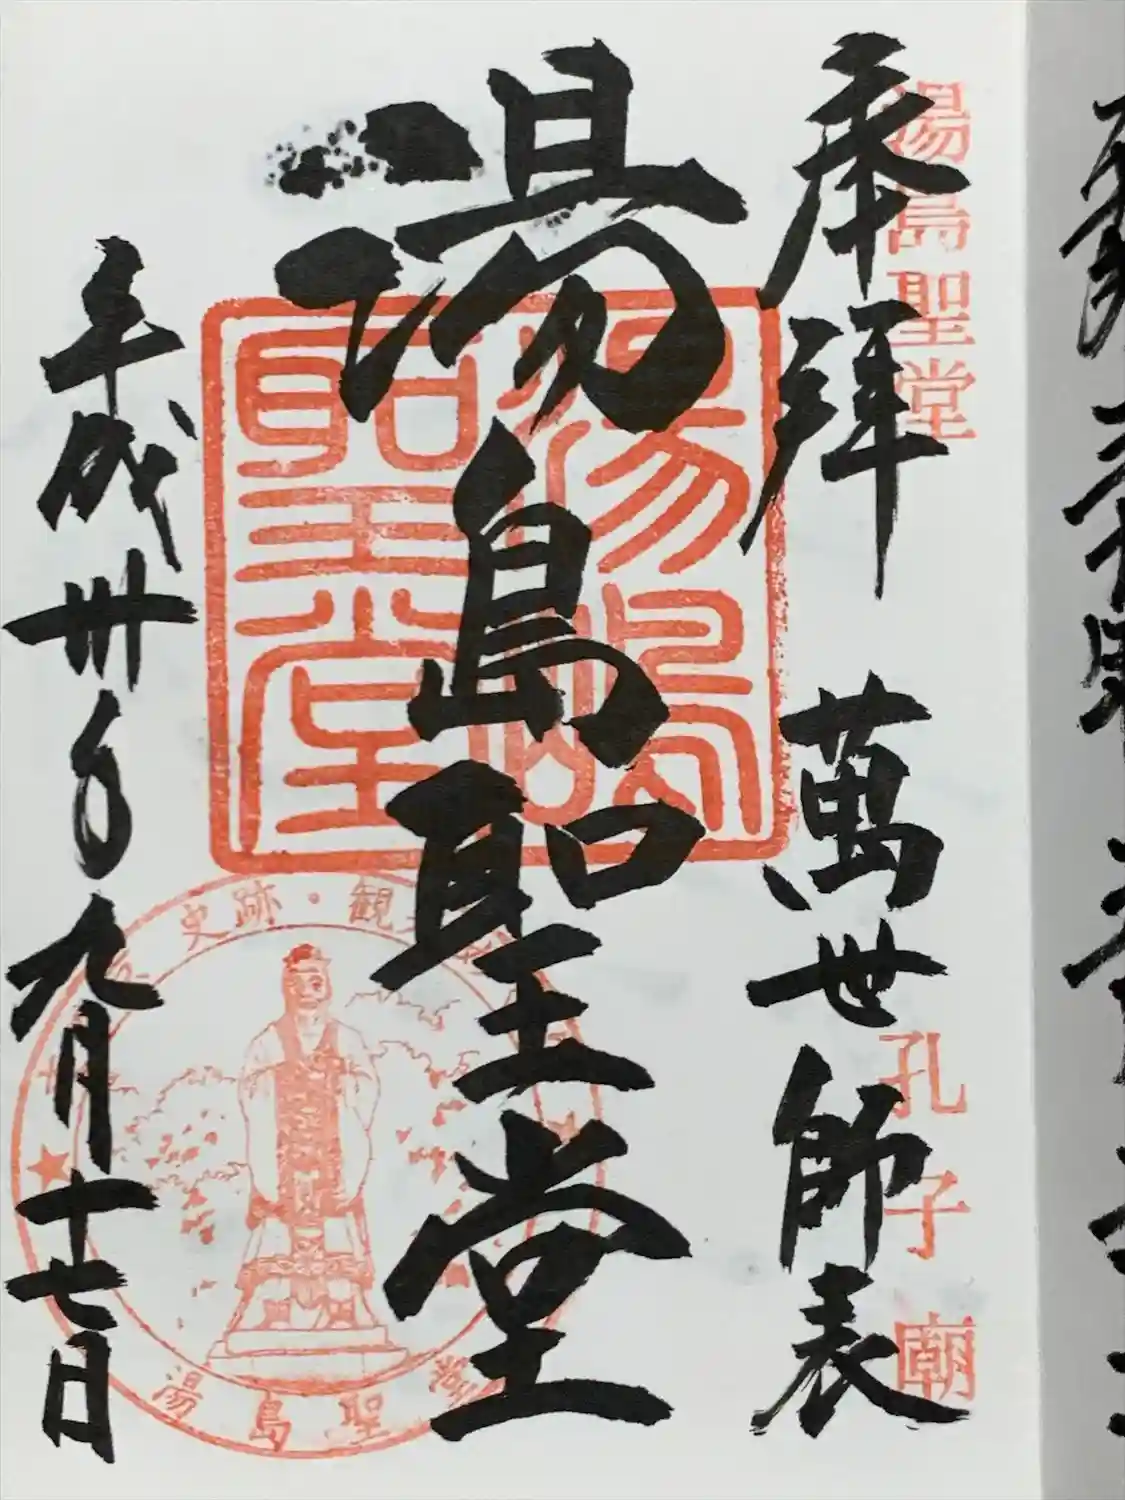 奉拝 萬世師表
湯島聖堂
孔子廟
湯島聖堂
湯島聖堂
史跡・観
湯島聖堂
平成卅年九月十七日